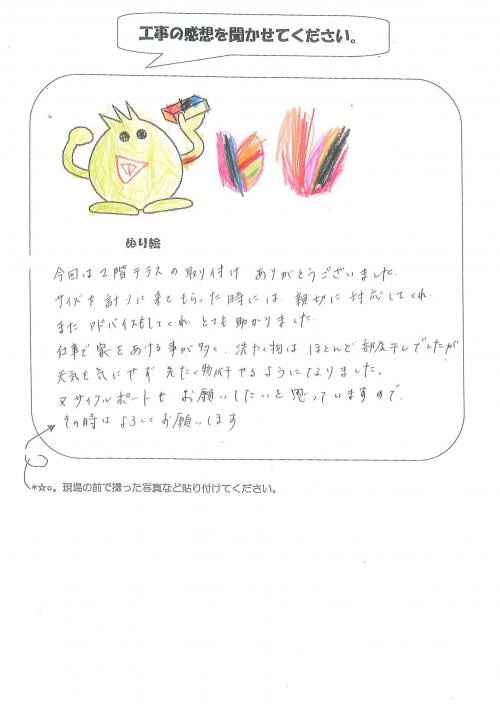 工事の感想を聞かせてください。
ぬり絵
今回は2階テラスの取り付け ありがとうございました。
サイズを計りに来てもらった時には、親切に対応してくれ
また アドバイスもしてくれ とても助かりました。
仕事で家をあける事が多く、洗たく物は ほとんど部屋干しでしたが
天気を気にせず 洗たく物が干せるようになりました。
又サイクルポートも お願いしたいと思っていますので、
その時は よろしくお願いします
*☆○。現場の前で撮った写真など貼り付けてください。